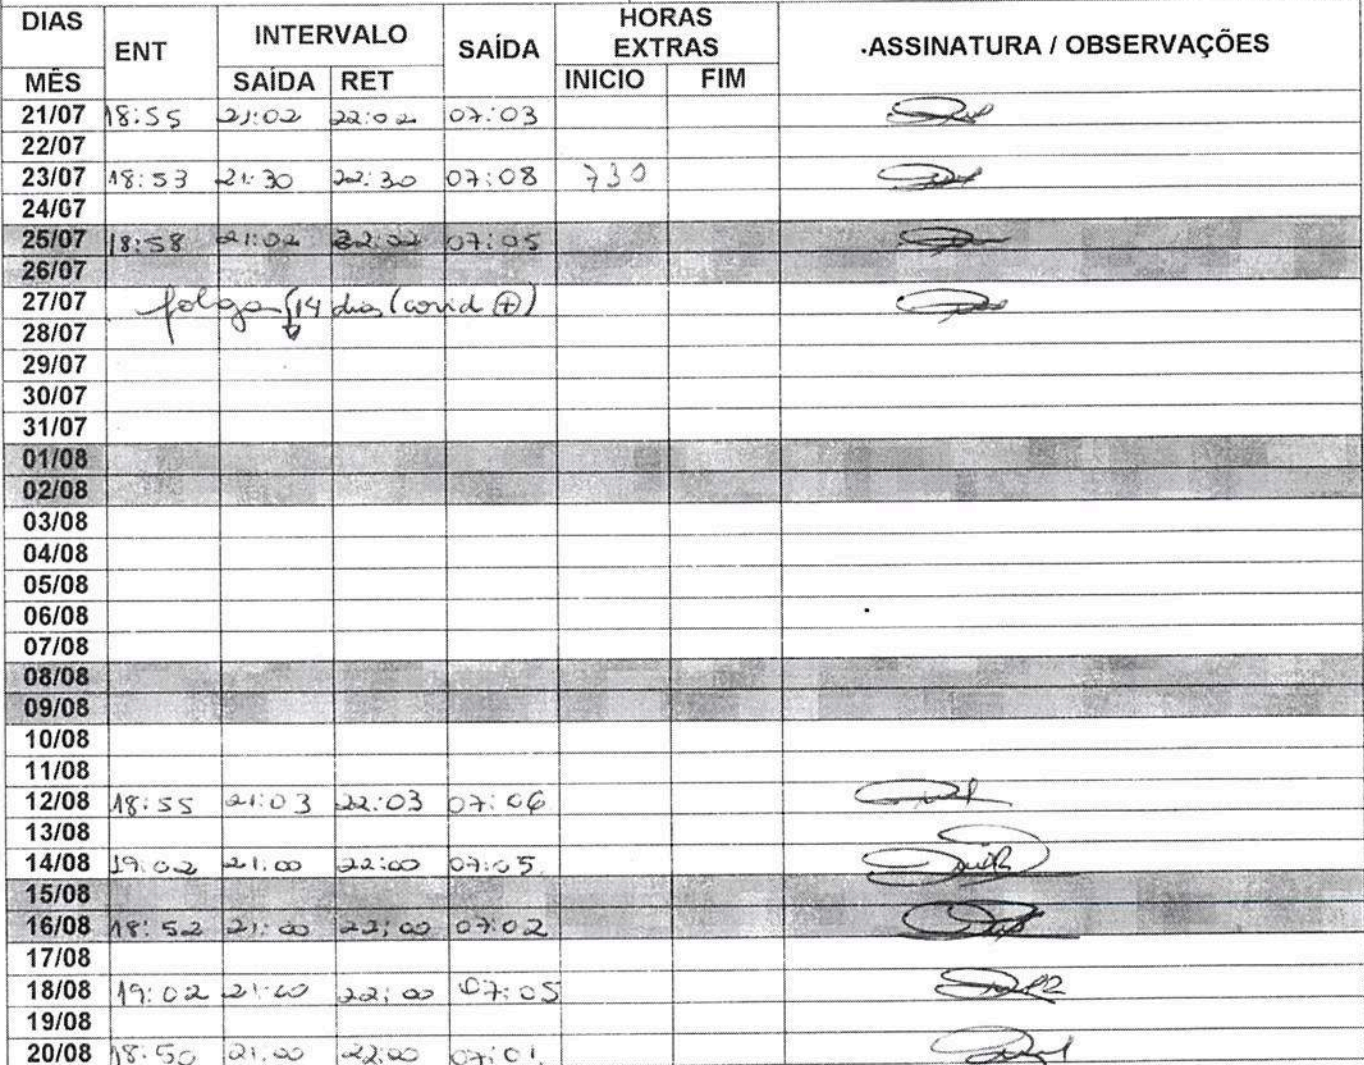 DIAS ENT INTERVALO SAÍDA HORAS EXTRAS .ASSINATURA / OBSERVAÇÕES
MÊS SAÍDA RET INICIO FIM
21/07 18:55 21:02 22:02 07:03
22/07
23/07 18:53 21:30 22:30 07:08 730
24/07
25/07 18:58 21:02 22:02 07:05
26/07
27/07 folga 14 dias (covid +)
28/07
29/07
30/07
31/07
01/08
02/08
03/08
04/08
05/08
06/08
07/08
08/08
09/08
10/08
11/08
12/08 18:55 21:03 22:03 07:06
13/08
14/08 19:02 21:00 22:00 07:05
15/08
16/08 18:52 21:00 22:00 07:02
17/08
18/08 19:02 21:00 22:00 07:05
19/08
20/08 18:50 21:00 22:00 07:01